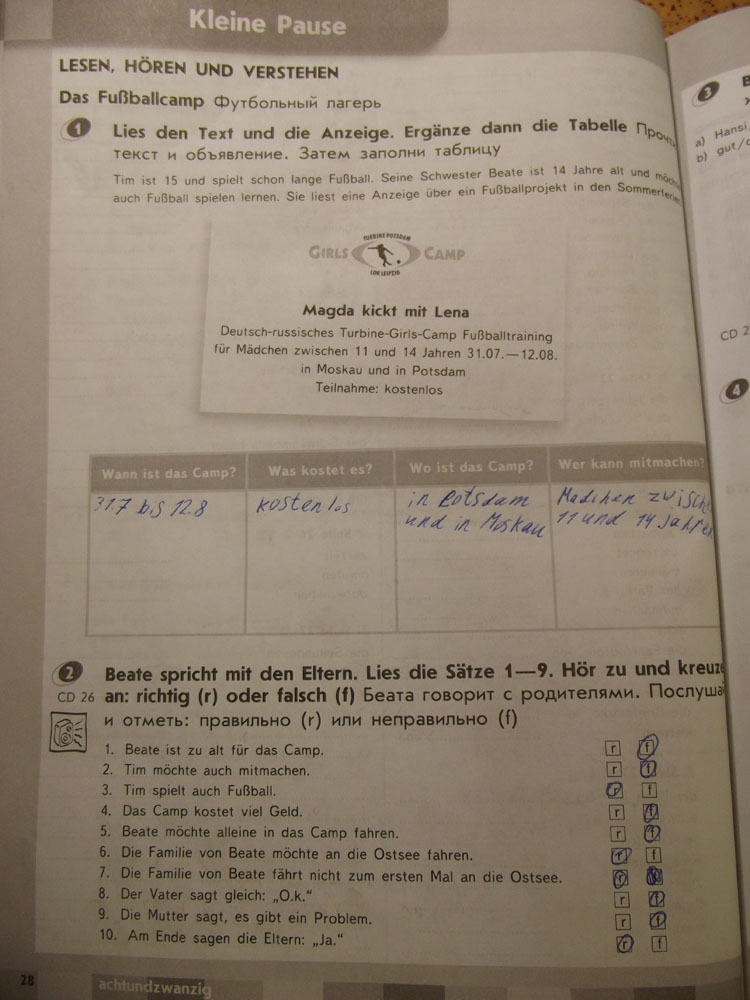 Kleine Pause
LESEN, HÖREN UND VERSTEHEN
Das Fußballcamp Футбольный лагерь
1 Lies den Text und die Anzeige. Ergänze dann die Tabelle
текст и объявление. Затем заполни таблицу
Tim ist 15 und spielt schon lange Fußball. Seine Schwester Beate ist 14 Jahre alt und
auch Fußball spielen lernen. Sie liest eine Anzeige über ein Fußballprojekt in den
TURBINE POTSDAM
GIRLS CAMP
LOK LEIPZIG
Magda kickt mit Lena
Deutsch-russisches Turbine-Girls-Camp Fußballtraining
für Mädchen zwischen 11 und 14 Jahren 31.07.—12.08.
in Moskau und in Potsdam
Teilnahme: kostenlos
Wann ist das Camp? Was kostet es? Wo ist das Camp? Wer kann mitmachen?
31.7 bis 12.8 kostenlos in Potsdam Mädchen
und in Moskau 11 und 14
2 Beate spricht mit den Eltern. Lies die Sätze 1—9. Hör zu und kreuze
CD 26 an: richtig (r) oder falsch (f) Беата говорит с родителями. Послуша
и отметь: правильно (r) или неправильно (f)
1. Beate ist zu alt für das Camp. r f
2. Tim möchte auch mitmachen. r f
3. Tim spielt auch Fußball. r f
4. Das Camp kostet viel Geld. r f
5. Beate möchte alleine in das Camp fahren. r f
6. Die Familie von Beate möchte an die Ostsee fahren. r f
7. Die Familie von Beate fährt nicht zum ersten Mal an die Ostsee. r
8. Der Vater sagt gleich: „O.k.“ r f
9. Die Mutter sagt, es gibt ein Problem. r f
10. Am Ende sagen die Eltern: „Ja.“ r f
28 achtundzwanzig
3
a) Hansi
b) gut/
CD 2
4